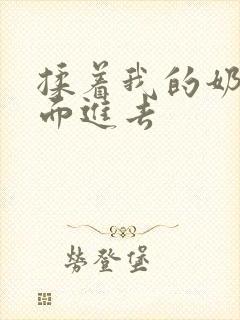 揉着我的奶
而进去
劳登堡